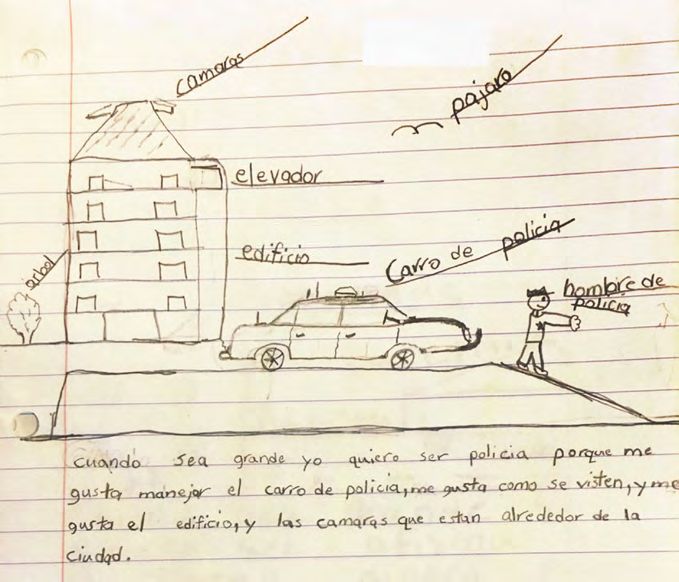 camaras
pajaro
elevador
edificio
Carro de policia
arbol
hombre de
policia
Cuando sea grande yo quiero ser policia porque me
gusta manejar el carro de policia, me gusta como se visten, y me
gusta el edificio, y las camaras que estan alrededor de la
ciudad.